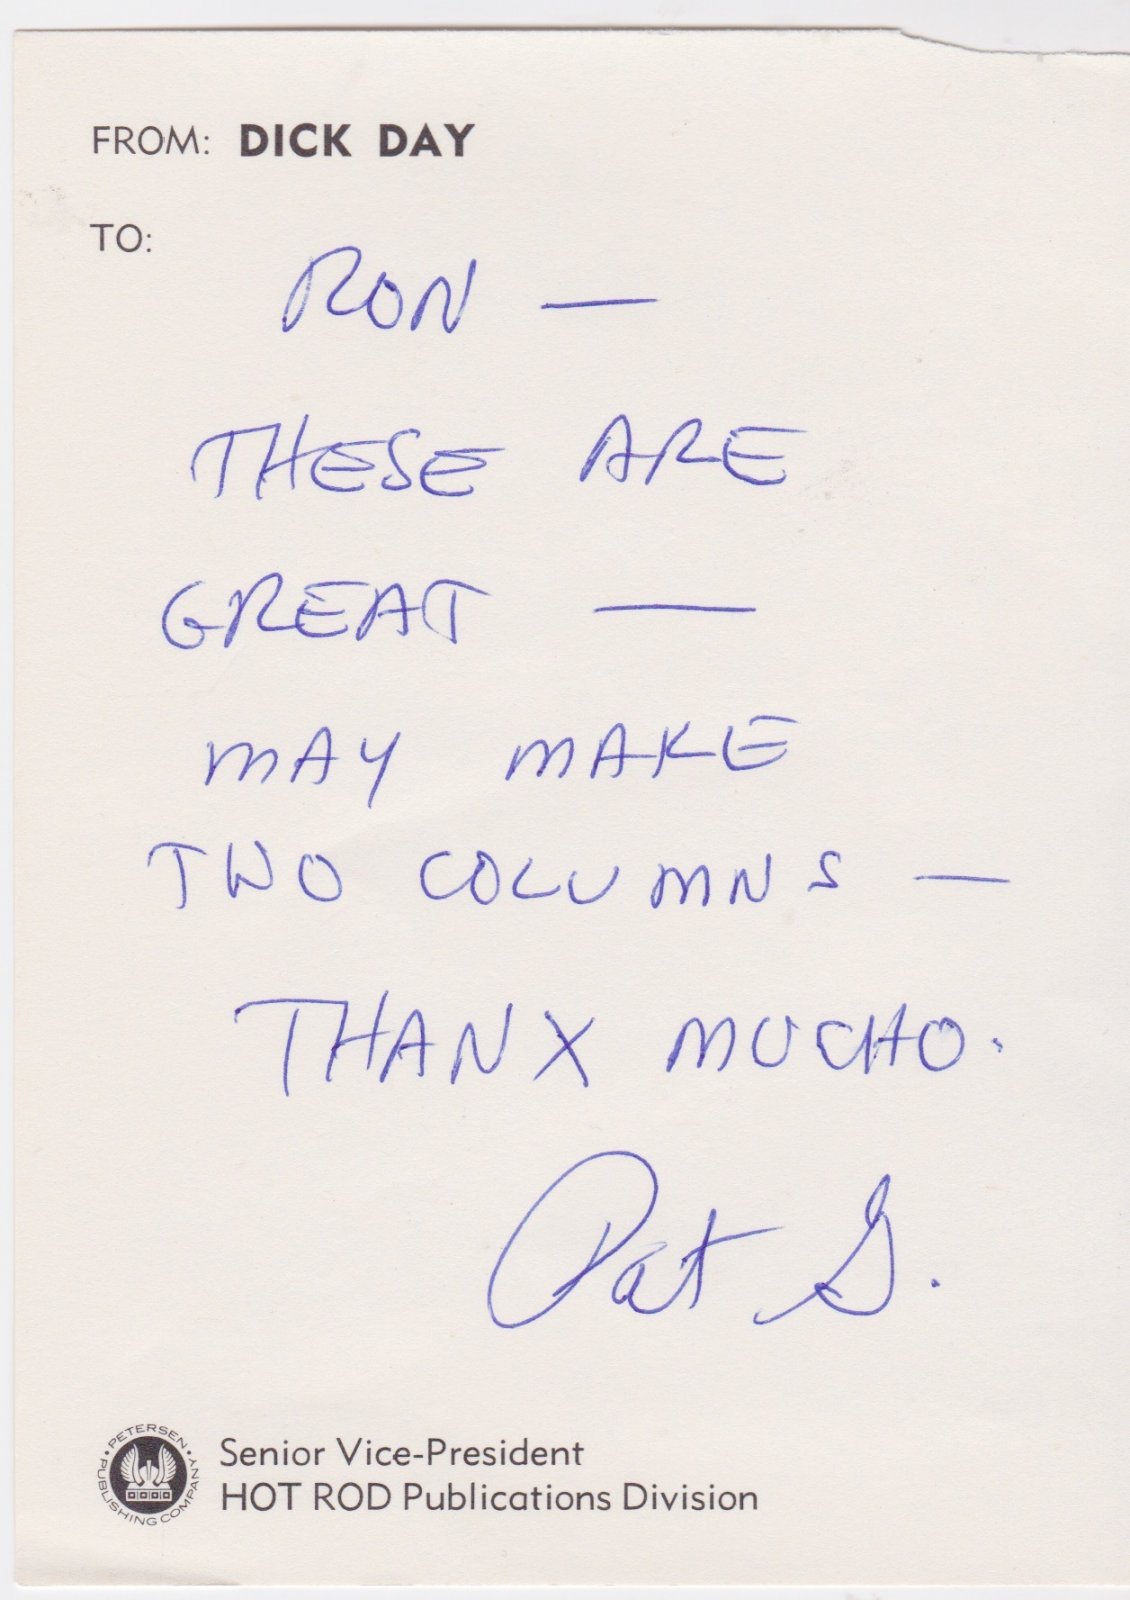 FROM: DICK DAY
TO:
RON —
THESE ARE
GREAT —
MAY MAKE
TWO COLUMNS —
THANX MUCHO.
Pat G.
• PETERSEN • PUBLISHING COMPANY
Senior Vice-President
HOT ROD Publications Division